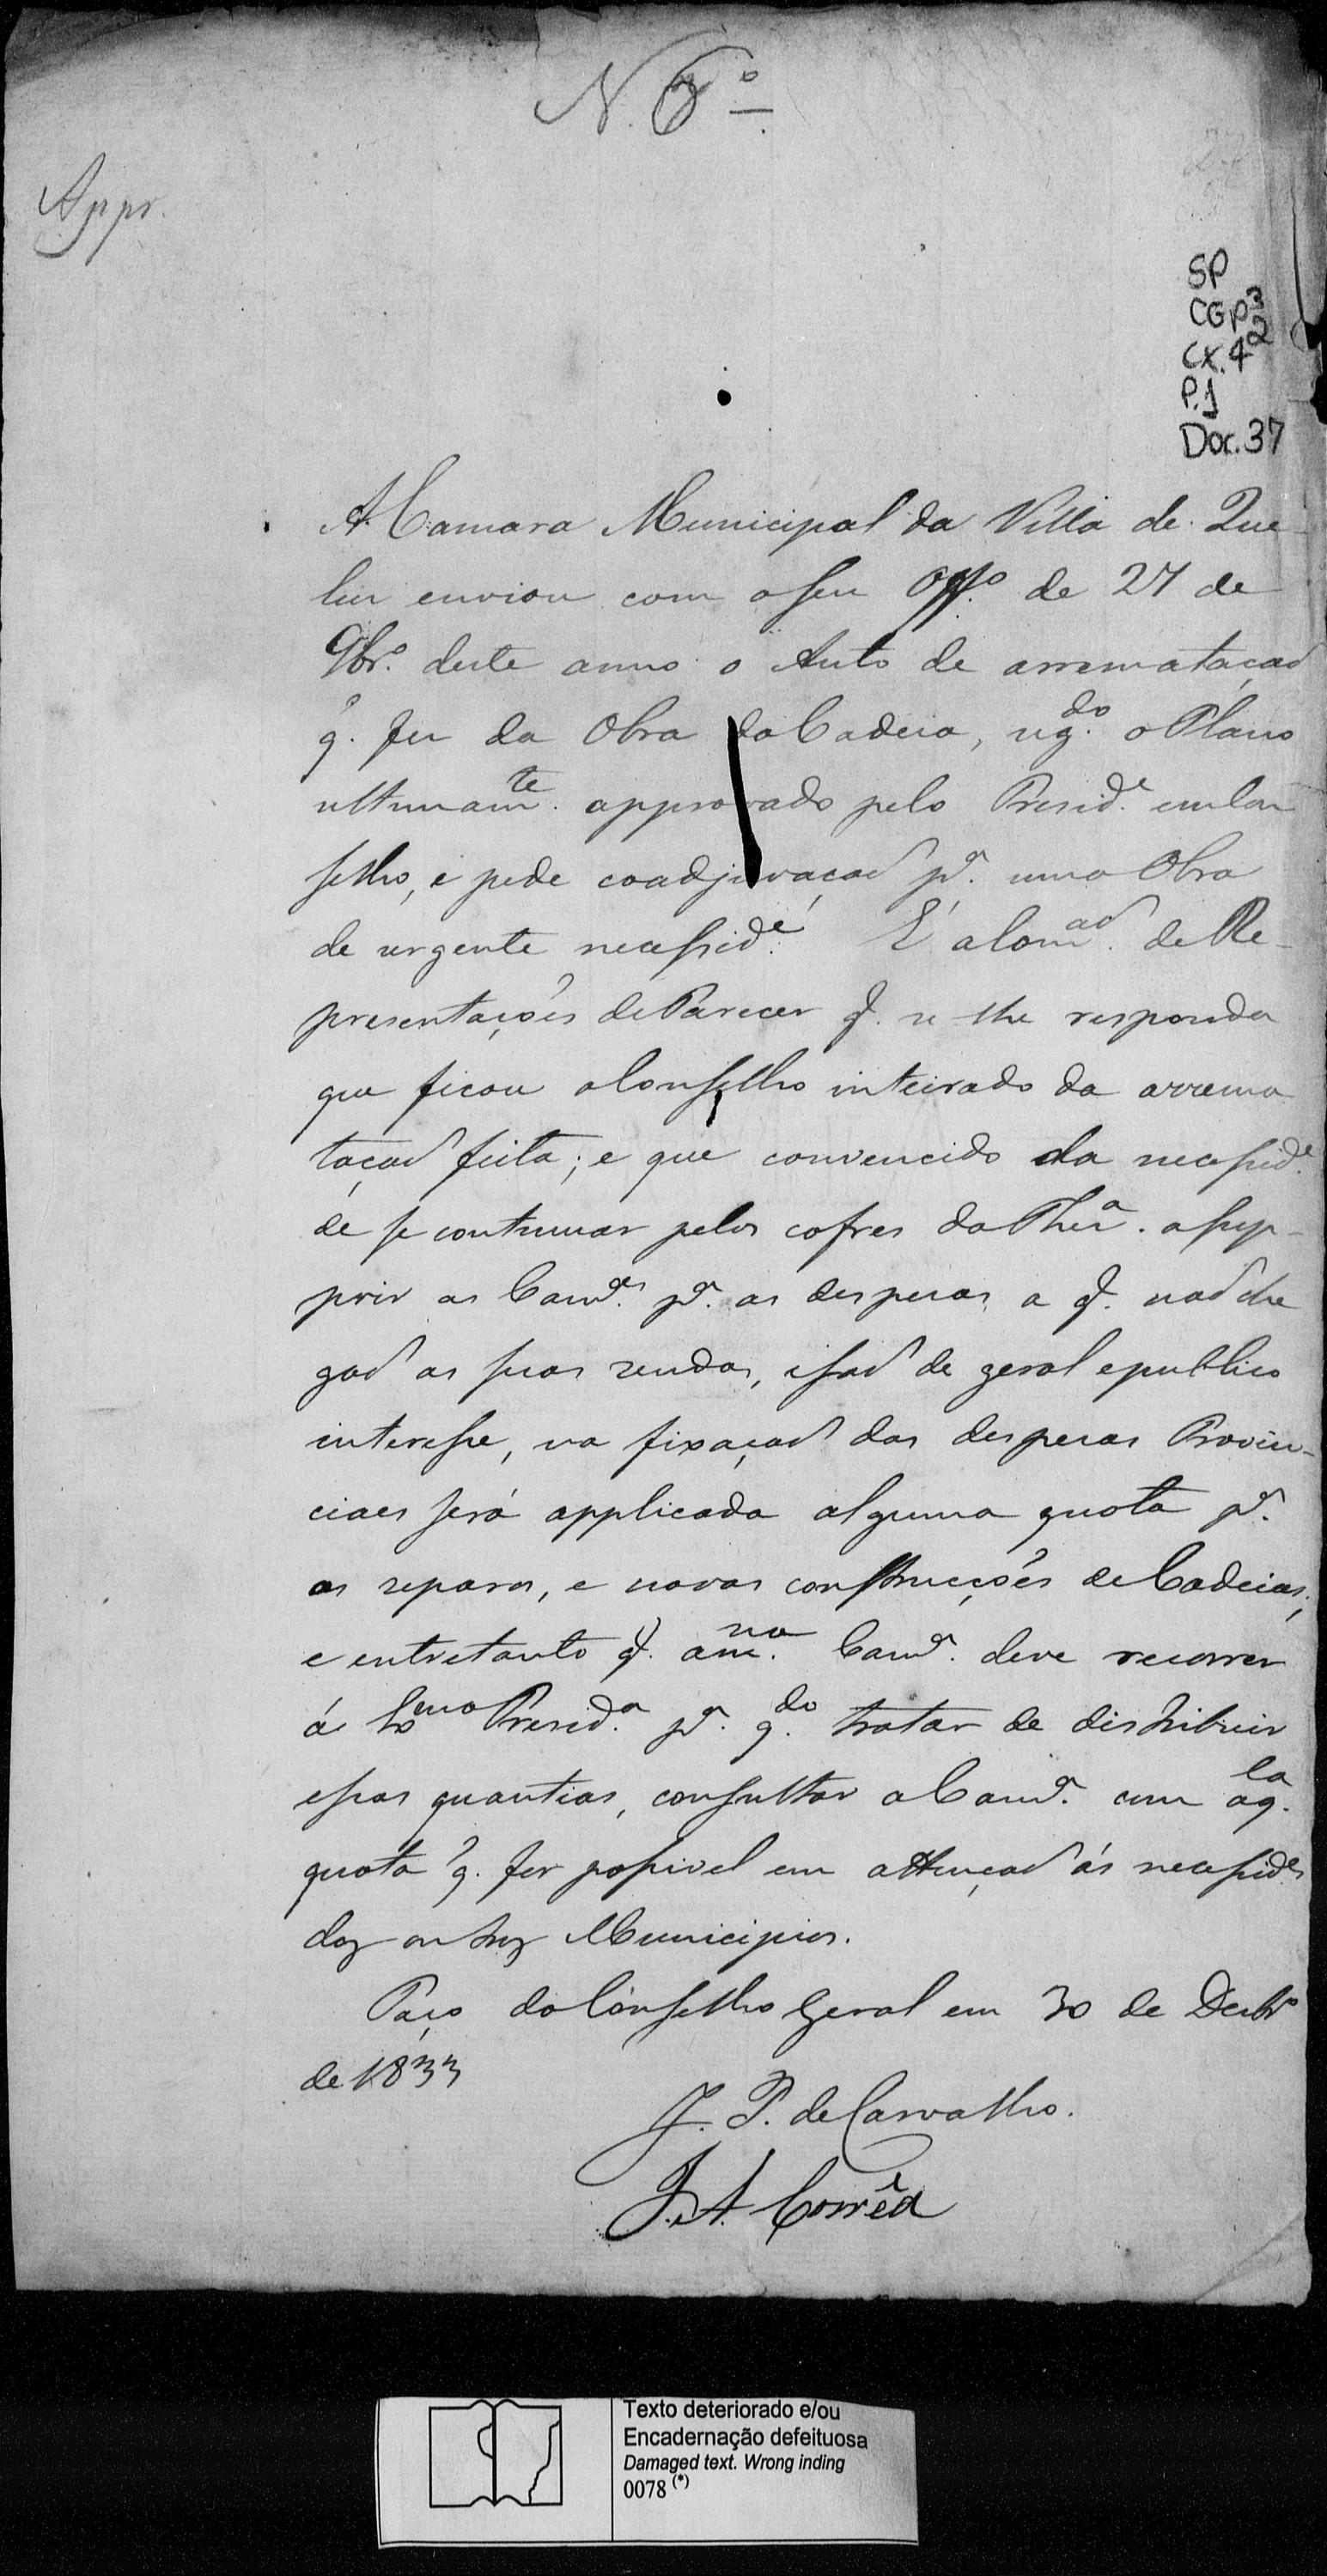 N. 6º
Appr.
SP
CGP3
CX.42
P.1
Doc.37
A Camara Municipal da Villa de Que-
luz enviou com o seu Off.º de 27 de
9br.º deste anno o Auto de arremataçaõ
q. fez da Obra da Cadeia, seg.do o Plano
ultimam.te approvado pelo Presid.e em Con-
selho, e pede coadjuvaçaõ p.ª uma Obra
de urgente necessid.e É a Com.aõ de Re-
presentações de Parecer q. se lhe responda
que ficou o Conselho inteirado da arrema-
taçaõ feita; e que convencido da necessid.e
de se continuar pelos cofres da Thez.ª a sup-
prir as Cam.as p.ª as despezas a q. naõ che-
gaõ as suas rendas, e saõ de geral e publico
interesse, na fixaçaõ das despezas Provin-
ciaes será applicada alguma quota p.ª
os reparos, e novas construcções de Cadeias,
e entretanto q. a m.ma Cam.ª deve recorrer
á Presid.ª p.ª q.do tratar de distribuir
essas quantias, consultar a Cam.ª com aq.la
quota q. for possivel em attençaõ ás necessid.es
doz outroz Municipios.
Paço do Conselho Geral em 30 de Dezbr.º
de 1833
J. P. de Carvalho.
J. A. Corrêa
Texto deteriorado e/ou
Encadernação defeituosa
Damaged text. Wrong inding
0078 (*)